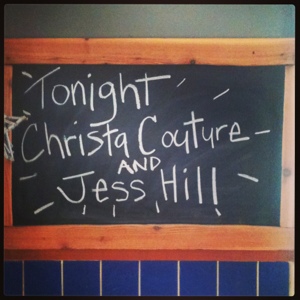 Tonight
Christa Couture
AND
Jess Hill